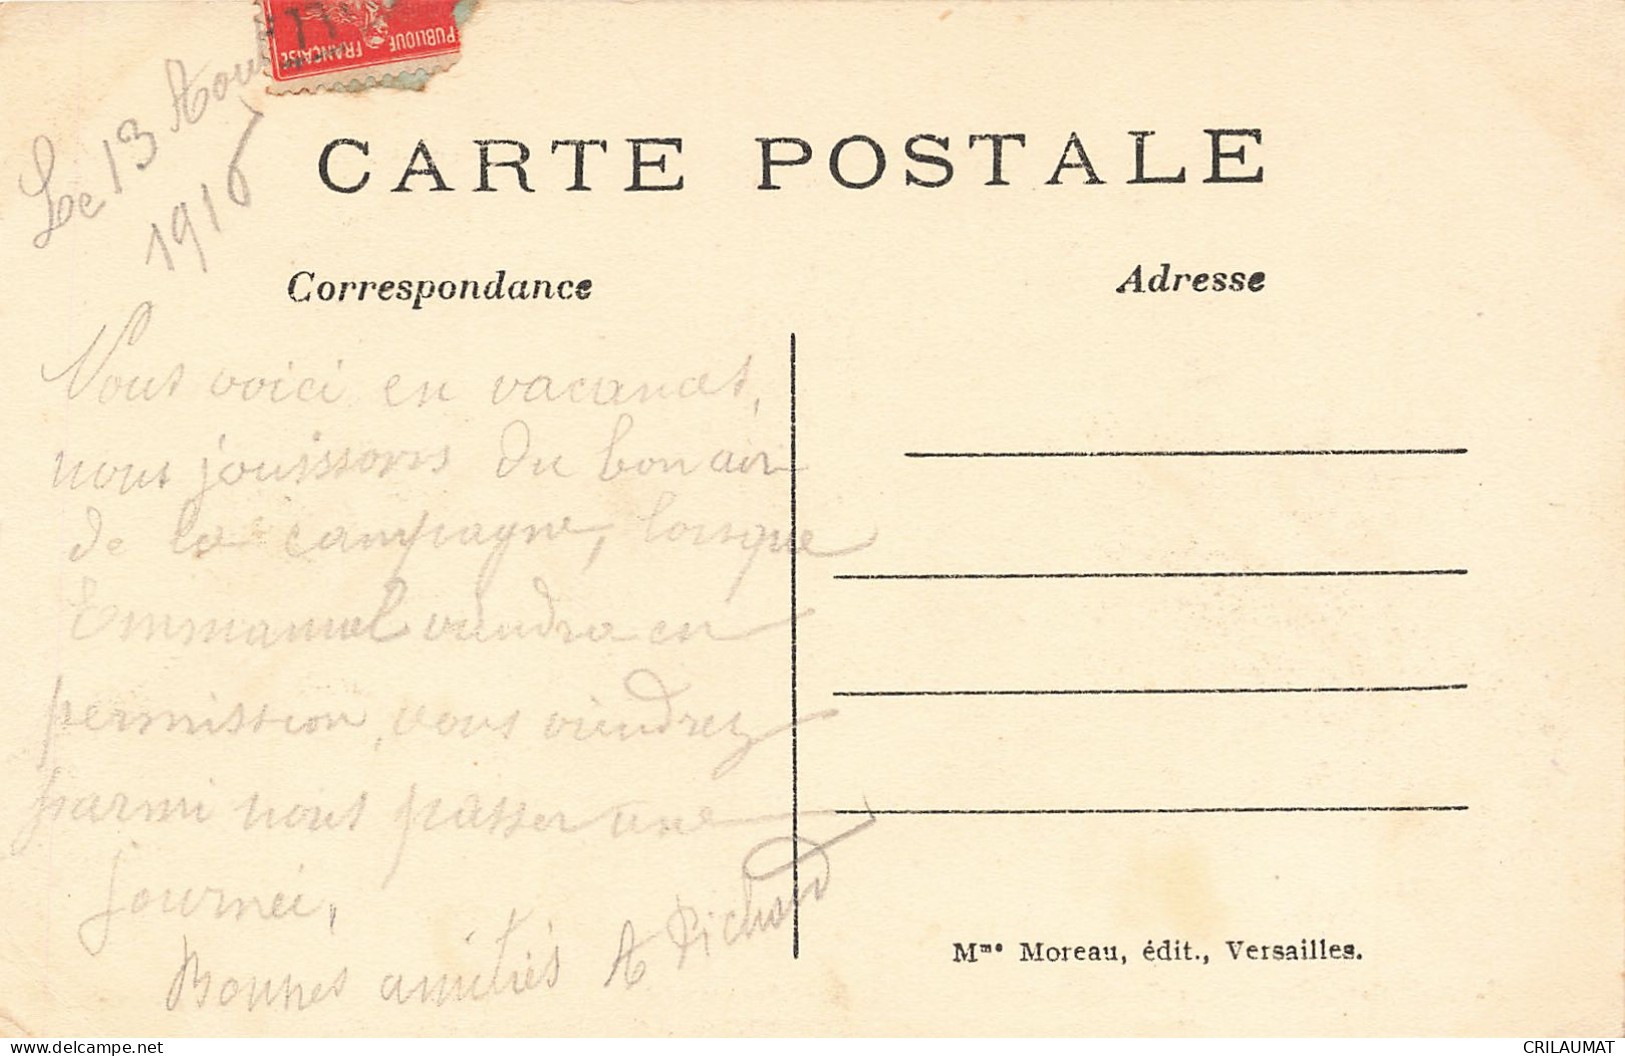 PUBLIQUE FRANÇAISE
Le 13 Aout
1916
CARTE POSTALE
Correspondance
Adresse
Nous voici en vacances,
nous jouissons du bon air
de la campagne, lorsque
Emmanuel viendra en
permission, vous viendrez
parmi nous passer une
journéi,
Bonnes amitiés A Richard
Mme Moreau, édit., Versailles.
www.delcampe.net
CRILAUMAT